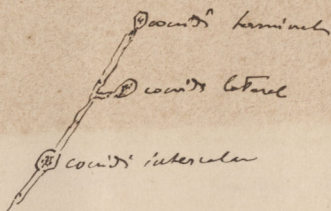 conidi terminal
conidi lateral
conidi intercalar